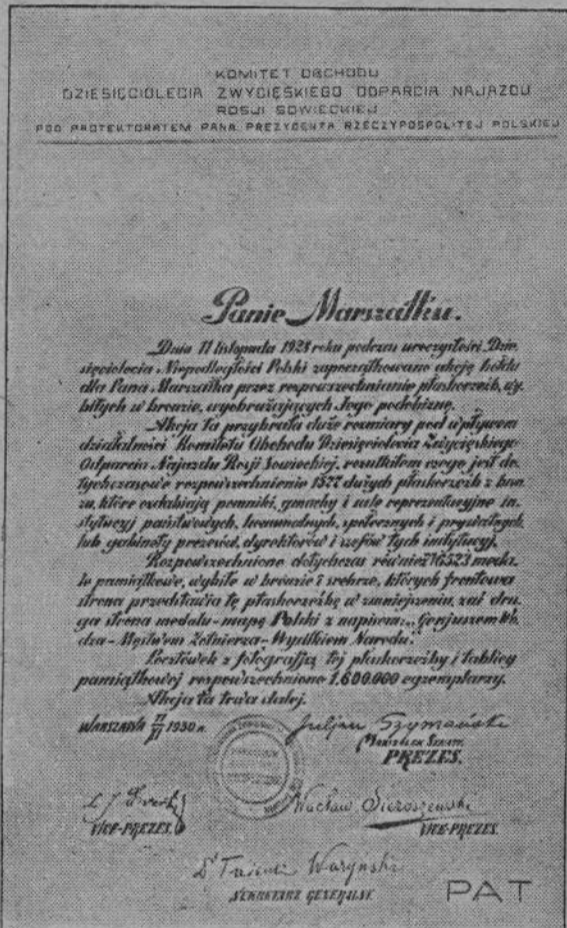 KOMITET OBCHODU
DZIESIĘCIOLECIA ZWYCIĘSKIEGO ODPARCIA NAJAZDU
ROSJI SOWIECKIEJ
POD PROTEKTORATEM PANA PREZYDENTA RZECZYPOSPOLITEJ POLSKIEJ
Panie Marszałku.
Dnia 11 listopada 1928 roku podczas uroczystości Dzie-
sięciolecia Niepodległości Polski zapoczątkowano akcję hołdu
dla Pana Marszałka przez rozpowszechnianie płaskorzeźb, wy-
bitych w bronzie, wyobrażających Jego podobiznę.
Akcja ta przybrała duże rozmiary pod wpływem
działalności Komitetu Obchodu Dziesięciolecia Zwycięskiego
Odparcia Najazdu Rosji Sowieckiej, rezultatem czego jest do-
tychczasowe rozpowszechnienie 1577 dużych płaskorzeźb z bron-
zu, które ozdabiają pomniki, gmachy i sale reprezentacyjne in-
stytucyj państwowych, komunalnych, społecznych i prywatnych,
lub gabinety prezesów, dyrektorów i szefów tych instytucyj.
Rozpowszechniono dotychczas również 16523 meda-
le pamiątkowe, wybite w bronzie i srebrze, których frontowa
strona przedstawia tę płaskorzeźbę w zmniejszeniu, zaś dru-
ga strona medalu - mapę Polski z napisem: "Genjuszem Wo-
dza - Męstwem Żołnierza - Wysiłkiem Narodu."
Pocztówek z fotografją tej płaskorzeźby i tablicy
pamiątkowej rozpowszechniono 1.600.000 egzemplarzy.
Akcja ta trwa dalej.
WARSZAWA 11/XI 1930 r.
Juljan Szymański
Marszałek Senatu
PREZES.
Wacław Sieroszewski
VICE-PREZES. VICE-PREZES.
Dr Tadeusz
SEKRETARZ GENERALNY.
PAT